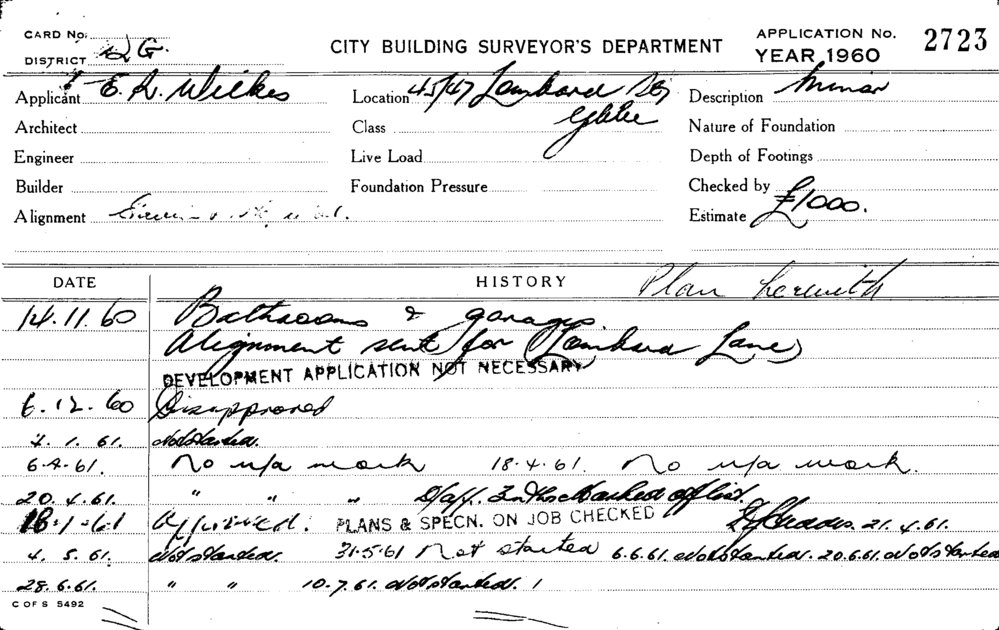 CARD No.
DISTRICT G.
CITY BUILDING SURVEYOR'S DEPARTMENT
APPLICATION No. 2723
YEAR 1960
Applicant E. R. Wilkes
Location 45/47 Lombard St
Glebe
Description Minor
Architect
Class
Nature of Foundation
Engineer
Live Load
Depth of Footings
Builder
Foundation Pressure
Checked by
Alignment
Estimate £1000.
DATE HISTORY Plan herewith
14.11.60 Bathrooms & garages
Alignment sent for (Lombard Lane)
DEVELOPMENT APPLICATION NOT NECESSARY
6.12.60 Disapproved
4.1.61. Not started.
6.4.61. No u/a work 18.4.61. No u/a work.
20.4.61. " " "
18.1.61 Approved. PLANS & SPECN. ON JOB CHECKED 21.4.61.
4.5.61. Not started. 31.5.61 Not started 6.6.61. Not started. 20.6.61. Not started
28.6.61. " " 10.7.61. Not started.
C OF S 5492